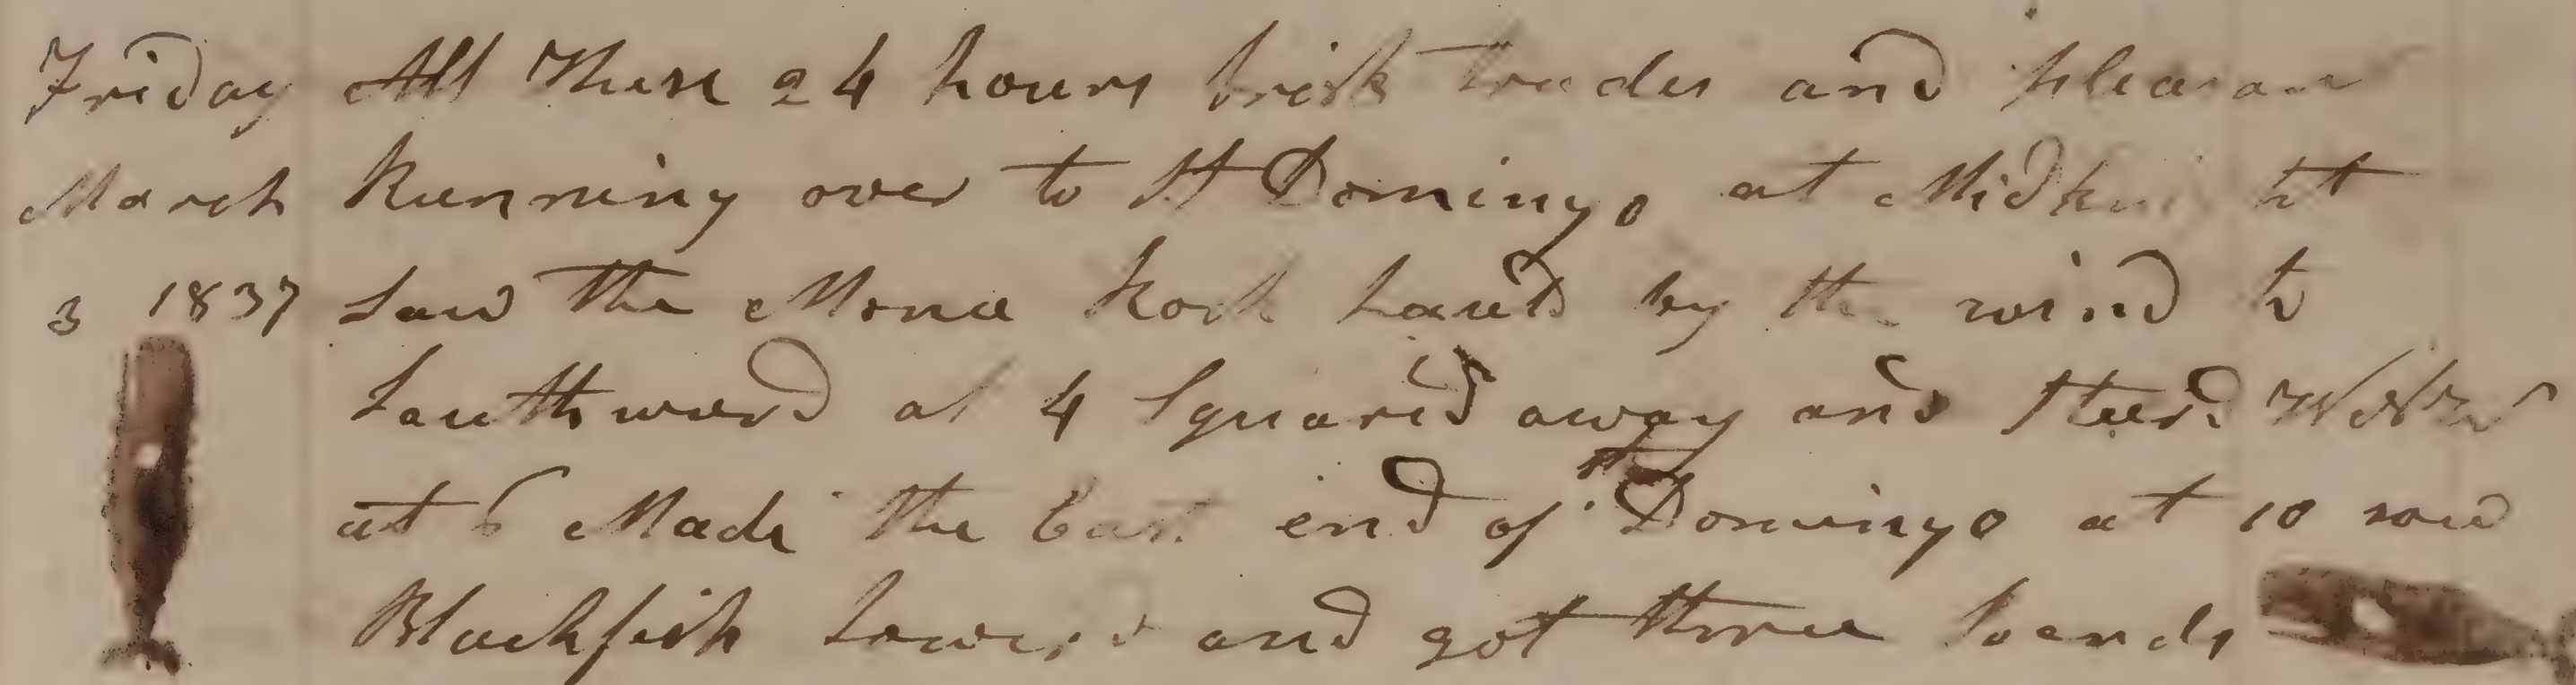 Friday All These 24 hours brisk trades and pleasan
March Running over to St Domingo at Midknight
3 1837 Saw the Mona Rock hauld by the wind to
Southward at 4 Squared away and Steerd WNW
at 6 Made the East end of St Domingo at 10 saw
Blackfish Lowerd and got three